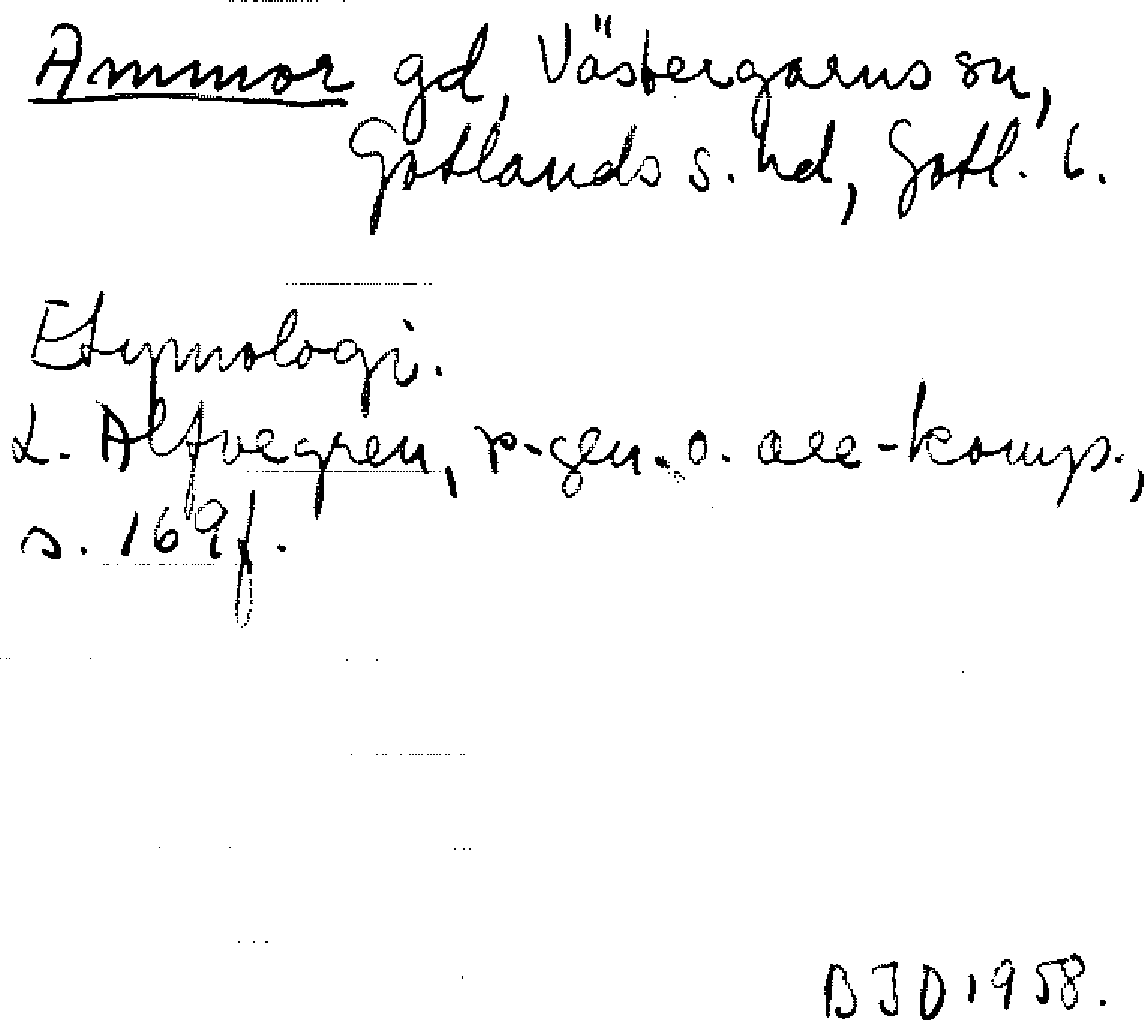 Ammor gd, Västergarns sn,
Gotlands s. hd, Gotl. l.
Etymologi.
L. Alfvegren, r-gen. o. are-komp.,
s. 169f.
BJD 1958.